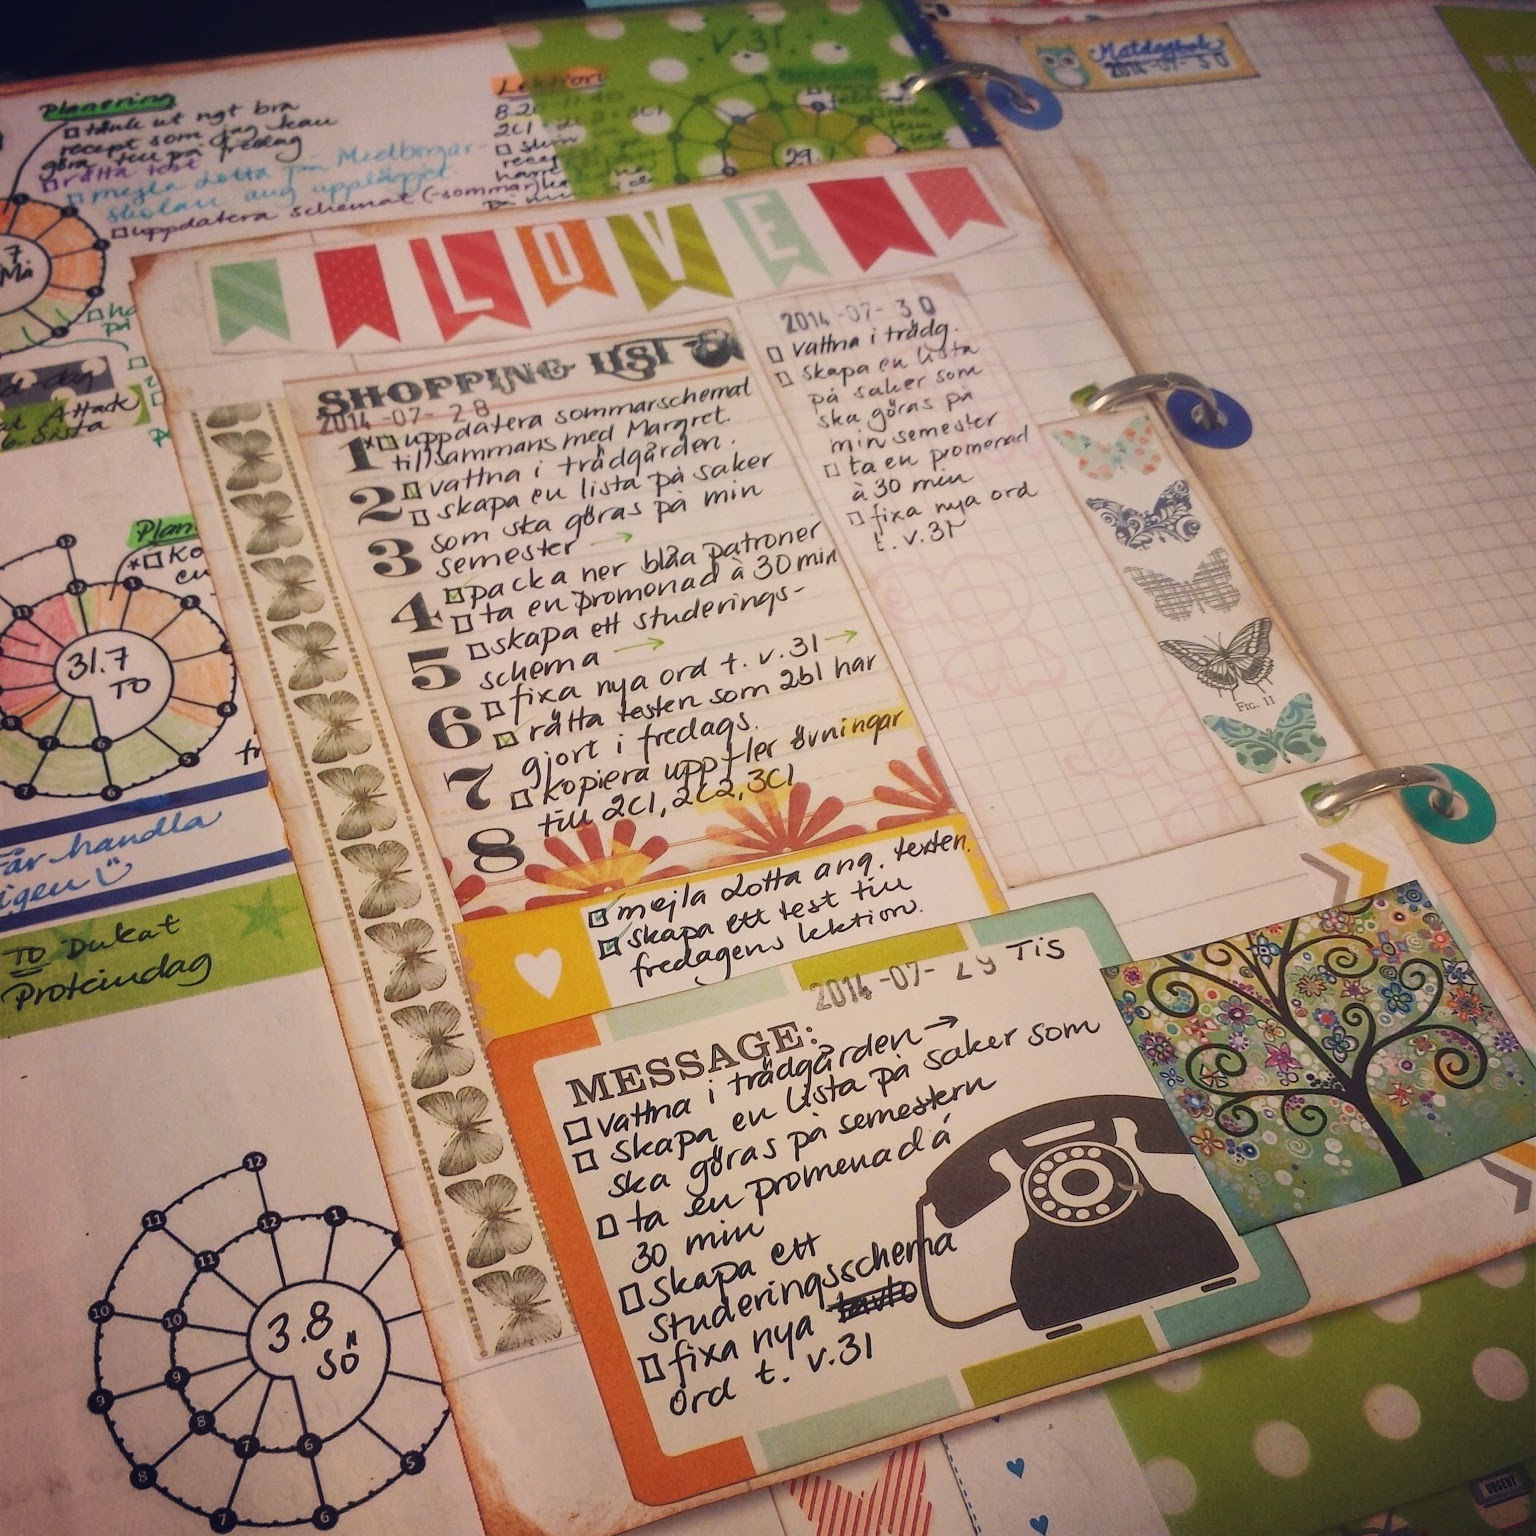 V. 31.
Planering
□ tänk ut ngt bra
recept som jag kan
göra till på fredag
□ rätta test
□ mejla Lotta på Medborgar-
skolan ang upplägget
□ uppdatera schemat (-sommar)
Lektion
2C1
29.7
Matdagbok
2014-07-30
7
Må
LOVE
SHOPPING LIST
2014-07-28
1 *□ uppdatera sommarschemat
tillsammans med Margret.
2 ☑ vattna i trädgården.
□ skapa en lista på saker
3 som ska göras på min
semester →
4 ☑ packa ner blåa patroner
□ ta en promenad à 30 min
5 □ skapa ett studerings-
schema →
6 □ fixa nya ord t. v. 31 →
☑ rätta testen som 2b1 har
7 gjort i fredags.
□ kopiera upp fler övningar
8 till 2C1, 2C2, 3C1
☑ mejla Lotta ang. texten.
☑ skapa ett test till
fredagens lektion.
2014-07-30
□ vattna i trädg.
□ skapa en lista
på saker som
ska göras på
min semester
□ ta en promenad
à 30 min
□ fixa nya ord
t. v. 31
FIG. 11
2014-07-29 TIS
MESSAGE:
□ vattna i trädgården →
□ skapa en lista på saker som
ska göras på semestern
□ ta en promenad á
30 min
□ skapa ett
studeringsschema
□ fixa nya
ord t. v. 31
Attack
Sista
Plan
31.7
TO
handla
igen
TO Dukat
Proteindag
3.8
SÖ
12
11
10
9
8
7
6
5
12
1
11
10
9
8
7
6